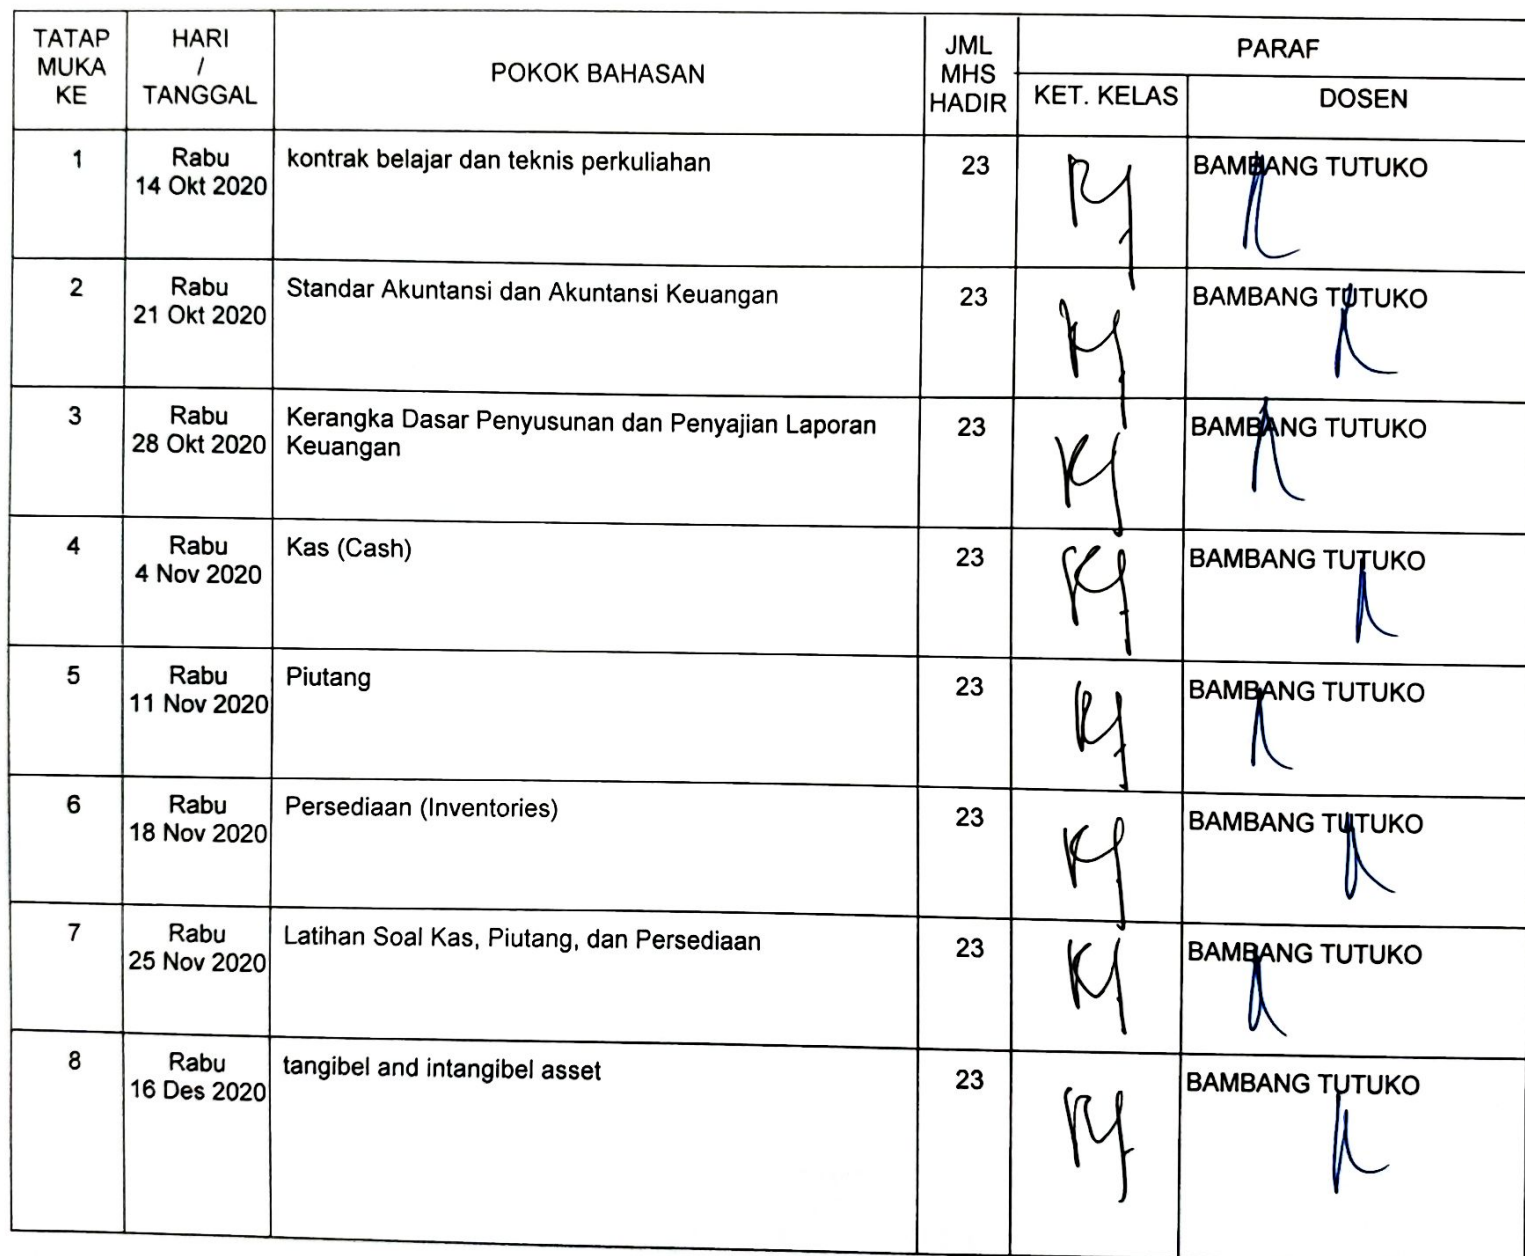 TATAP MUKA KE
HARI / TANGGAL
POKOK BAHASAN
JML MHS HADIR
PARAF
KET. KELAS
DOSEN
1
Rabu
14 Okt 2020
kontrak belajar dan teknis perkuliahan
23
BAMBANG TUTUKO
2
Rabu
21 Okt 2020
Standar Akuntansi dan Akuntansi Keuangan
23
BAMBANG TUTUKO
3
Rabu
28 Okt 2020
Kerangka Dasar Penyusunan dan Penyajian Laporan
Keuangan
23
BAMBANG TUTUKO
4
Rabu
4 Nov 2020
Kas (Cash)
23
BAMBANG TUTUKO
5
Rabu
11 Nov 2020
Piutang
23
BAMBANG TUTUKO
6
Rabu
18 Nov 2020
Persediaan (Inventories)
23
BAMBANG TUTUKO
7
Rabu
25 Nov 2020
Latihan Soal Kas, Piutang, dan Persediaan
23
BAMBANG TUTUKO
8
Rabu
16 Des 2020
tangibel and intangibel asset
23
BAMBANG TUTUKO